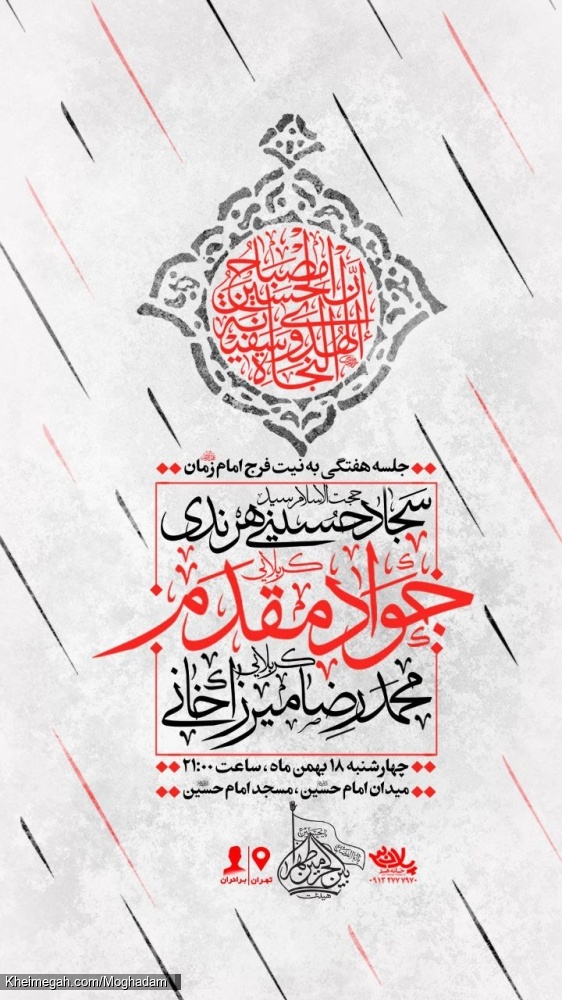 إنّ الحسین مصباح الهدی و سفینة النجاة
جلسه هفتگی به نیت فرج امام زمان
حجت الاسلام سید
سجاد حسینی هرندی
کربلایی
جواد مقدم
کربلایی
محمدرضا میرزاخانی
چهارشنبه ۱۸ بهمن ماه ، ساعت ۲۱:۰۰
میدان امام حسین ، مسجد امام حسین
هیئت
بین الحرمین طهران
تهران | برادران
خانه هنر
۰۹۱۲ ۲۷۷ ۷۹۷۰
Kheimegah.com/Moghadam